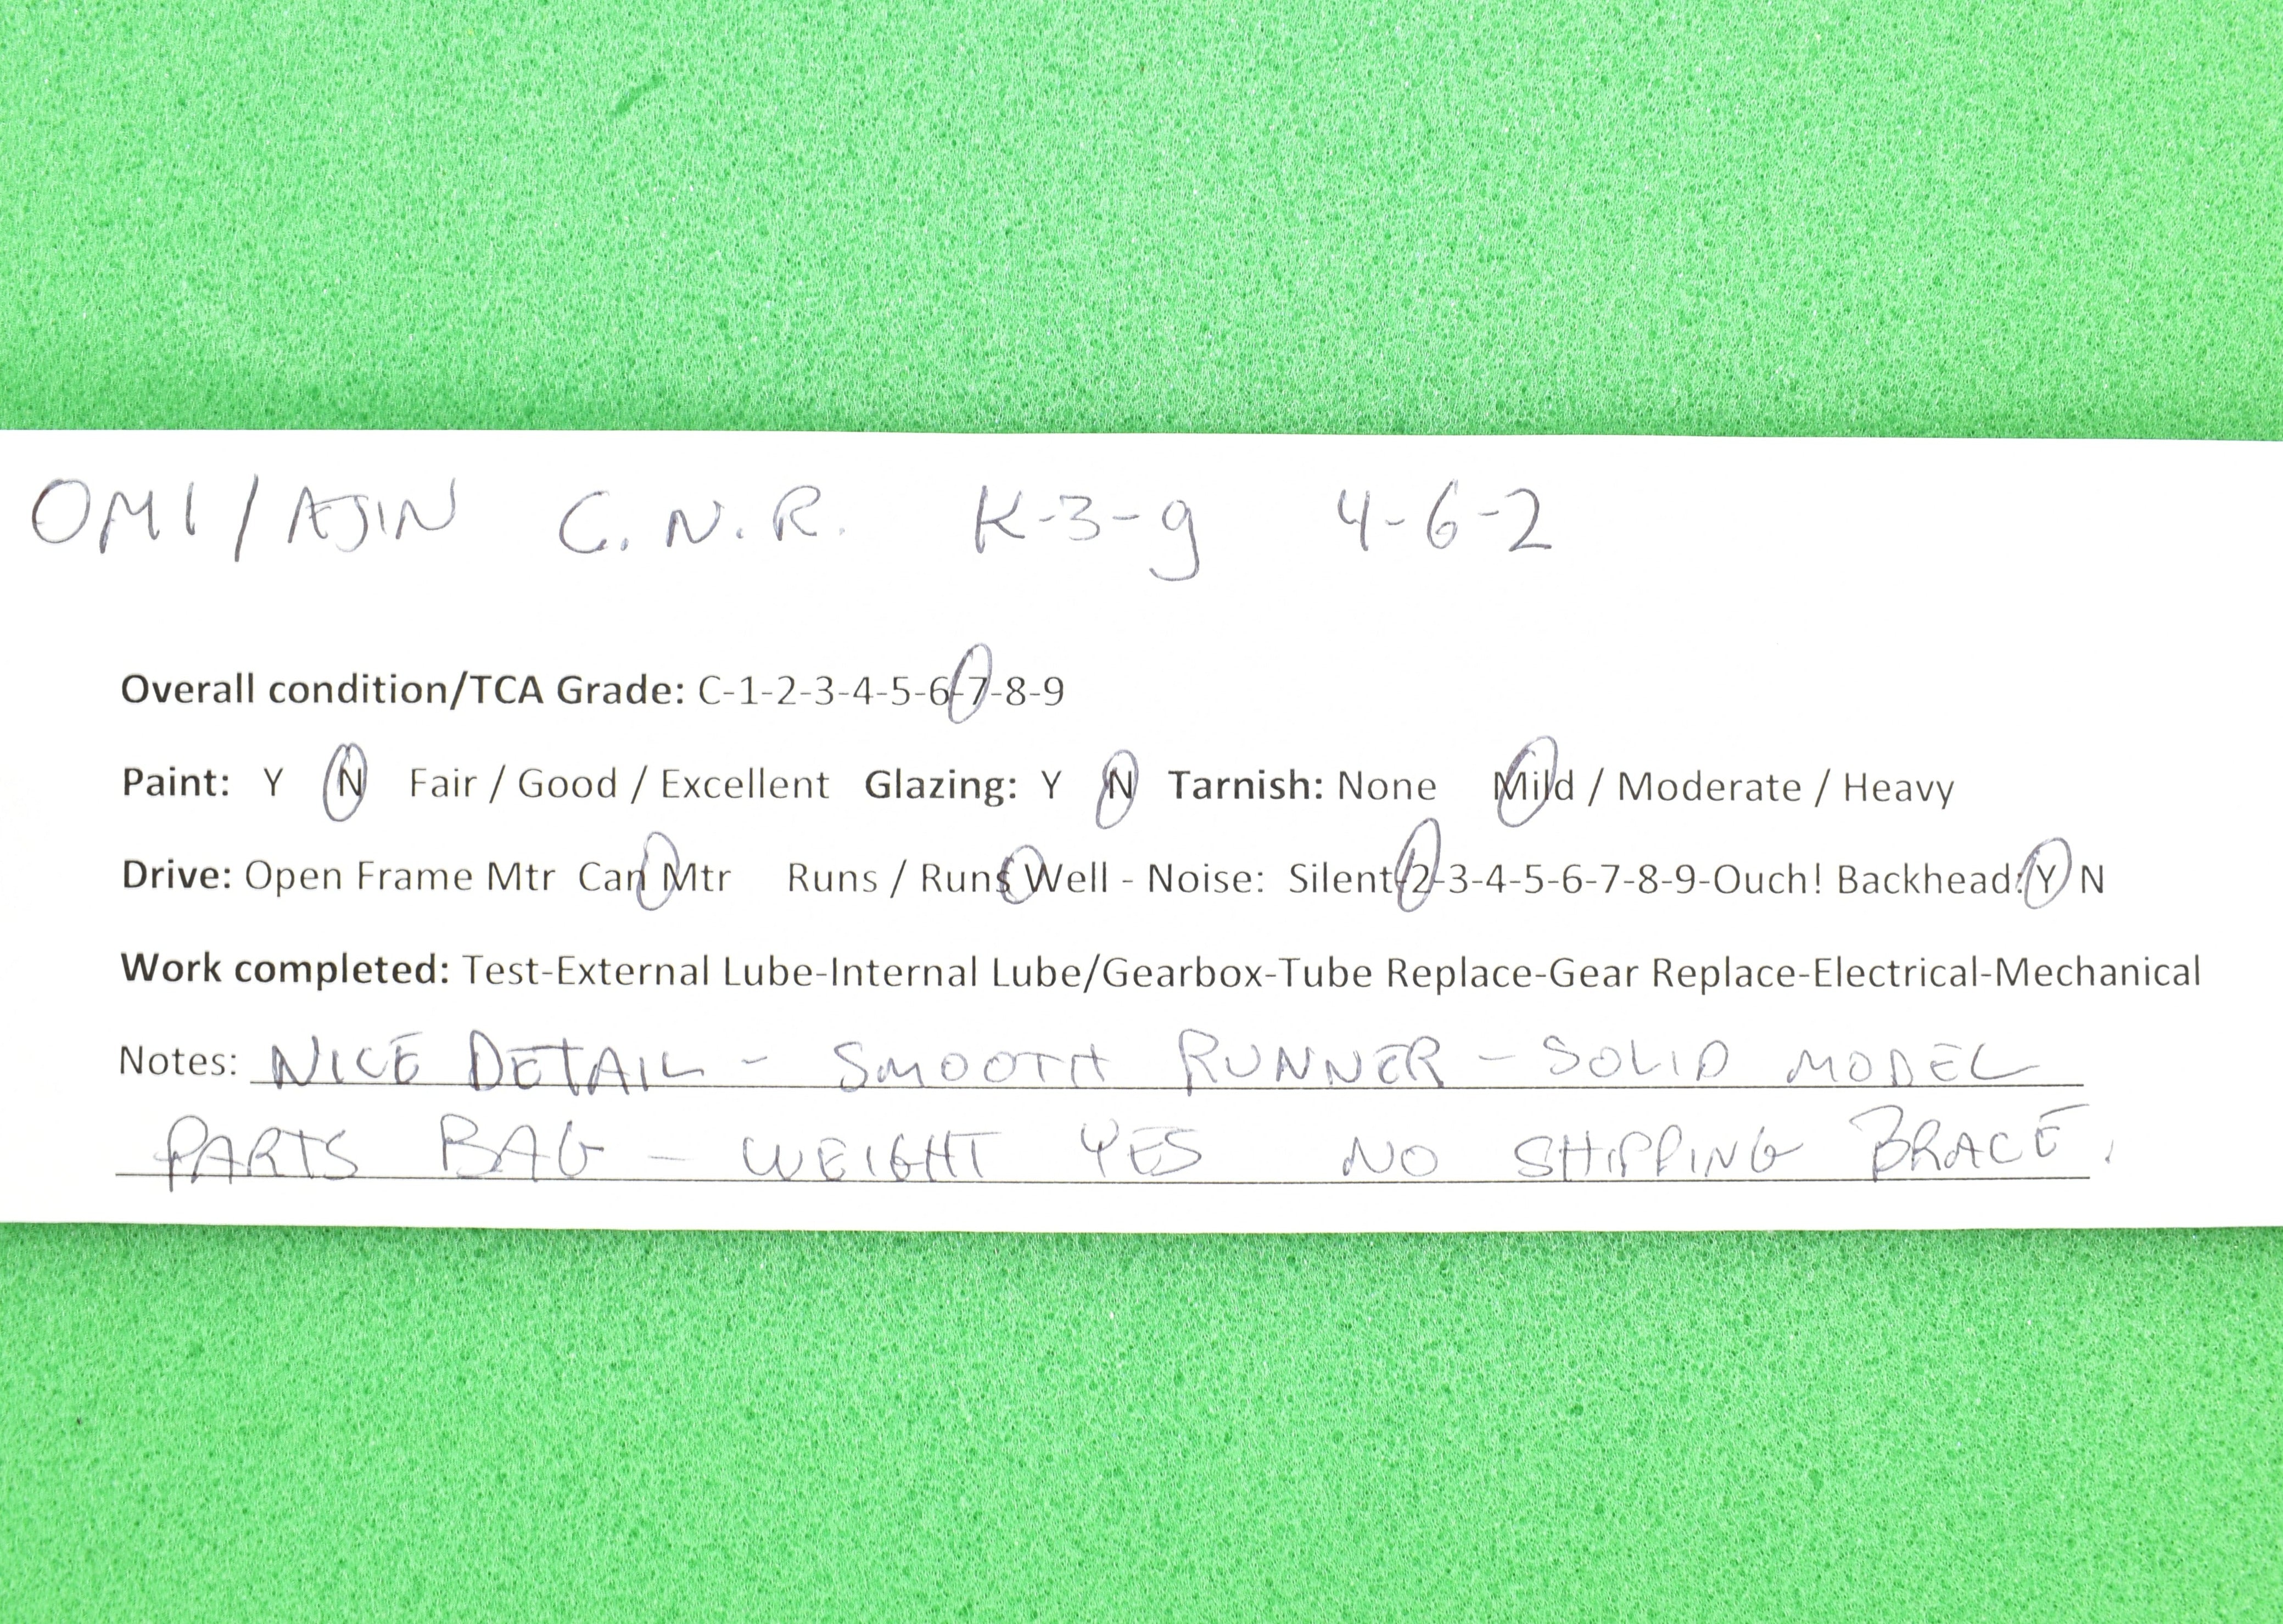 OMI / AJIN C.N.R. K-3-g 4-6-2
Overall condition/TCA Grade: C-1-2-3-4-5-6-7-8-9
Paint: Y N Fair / Good / Excellent Glazing: Y N Tarnish: None Mild / Moderate / Heavy
Drive: Open Frame Mtr Can Mtr Runs / Runs Well - Noise: Silent-2-3-4-5-6-7-8-9-Ouch! Backhead: Y N
Work completed: Test-External Lube-Internal Lube/Gearbox-Tube Replace-Gear Replace-Electrical-Mechanical
Notes: NICE DETAIL - SMOOTH RUNNER - SOLID MODEL
PARTS BAG - WEIGHT YES NO SHIPPING BRACE.